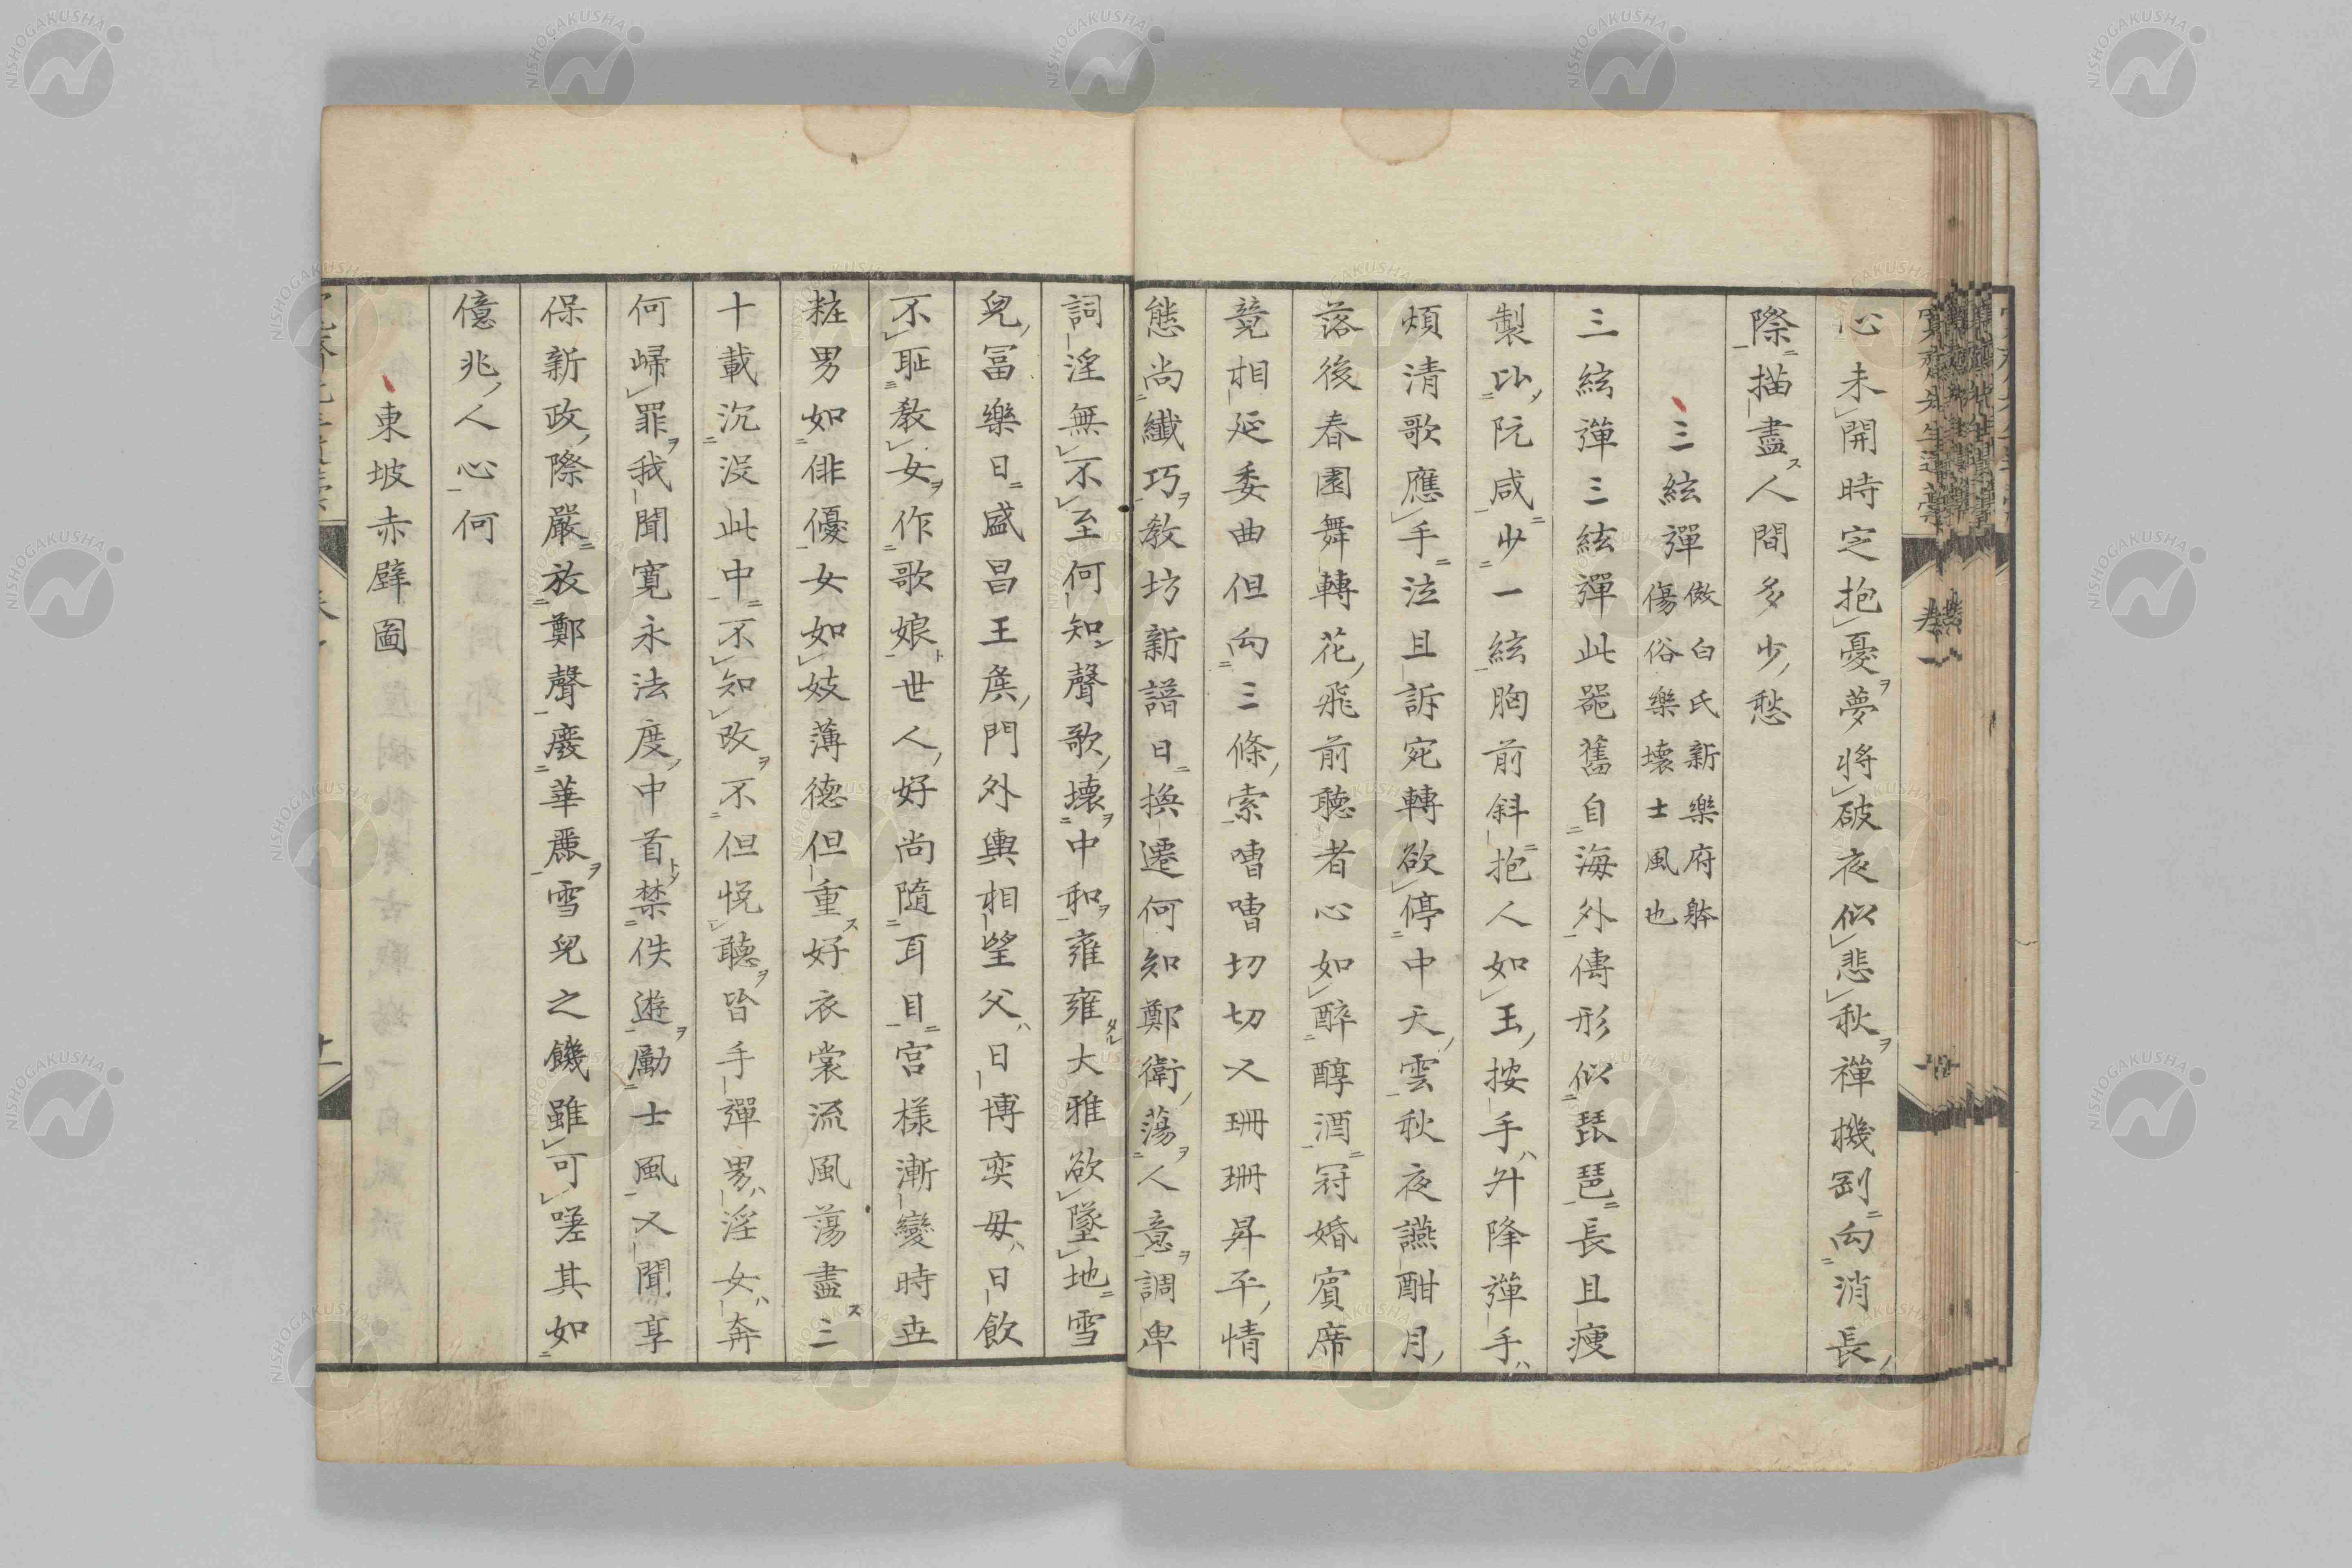 心未開時定抱憂夢將破夜似悲秋禪機劄向消長
際描盡人間多少愁
三絃彈 傲白氏新樂府躰 傷俗樂壞士風也
三絃彈三絃彈此器舊自海外傳形似琵琶長且瘦
製比阮咸少一絃胸前斜抱人如玉按手升降彈手
煩清歌應手泣且訴宛轉欲停中天雲秋夜讌酣月
落後春園舞轉花飛前聽者心如醉醇酒冠婚賓席
競相延委曲但向三條索嘈嘈切切又珊珊昇平情
態尚纖巧教坊新譜日換遷何知鄭衛蕩人意調卑
詞淫無不至何知聲歌壞中和雍雍大雅欲墜地雪
兒冨樂日盛昌王矦門外輿相望父日博奕母日飲
不耻教女作歌娘世人好尚隨耳目宮樣漸變時世
粧男如俳優女如妓薄德但重好衣裳流風蕩盡三
十載沉沒此中不知改不但悅聽皆手彈男淫女奔
何歸罪我聞寛永法度中首禁佚遊勵士風又聞享
保新政際嚴放鄭聲廢華麗雪兒之饑雖可嗟其如
億兆人心何
東坡赤壁圖